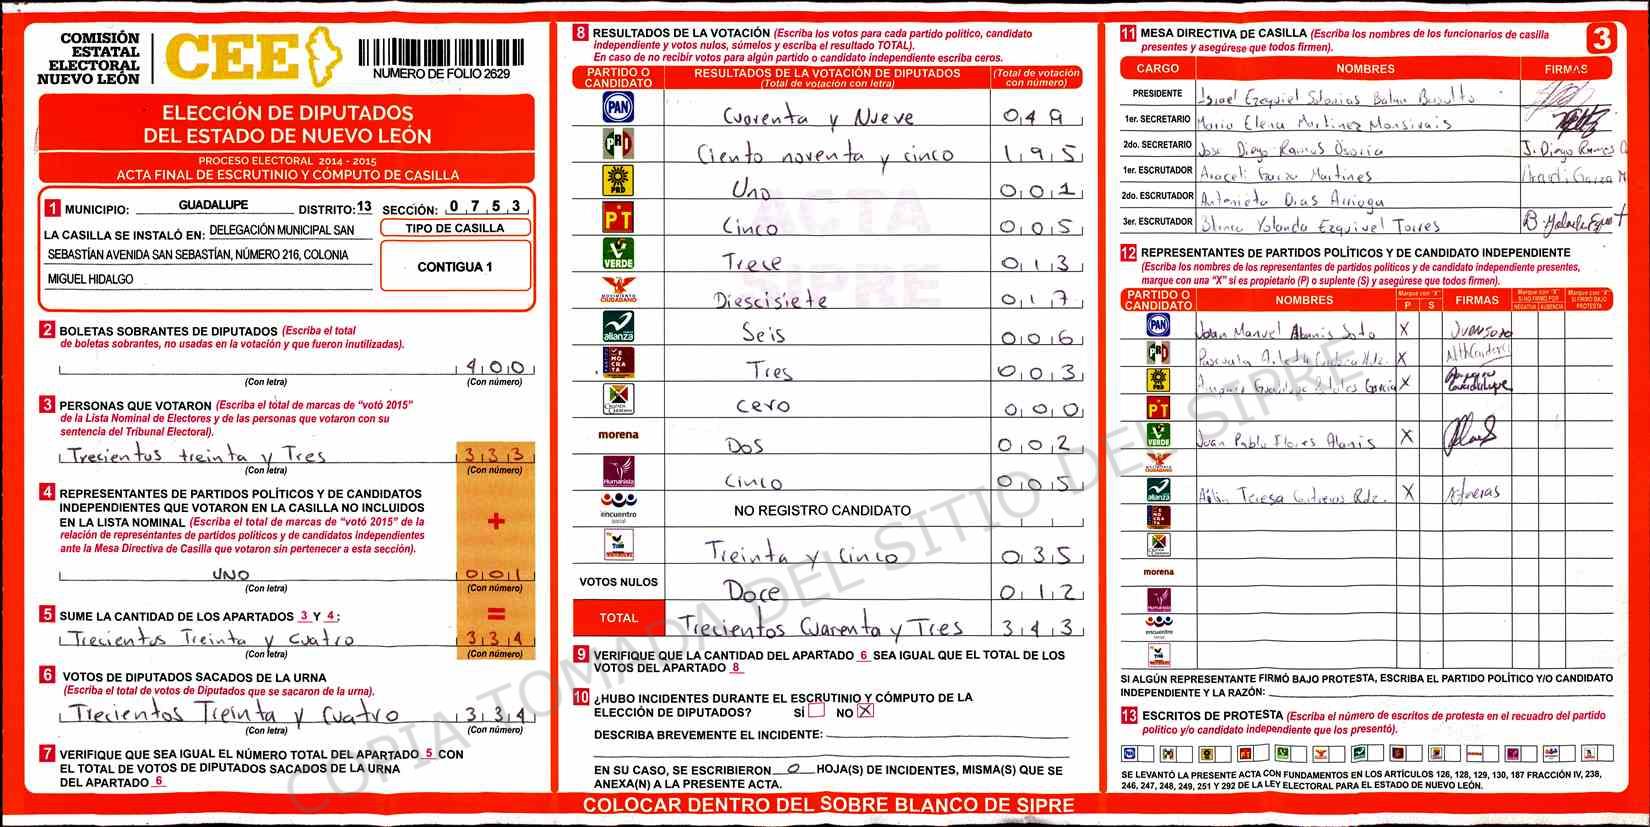 COMISIÓN
ESTATAL
ELECTORAL
NUEVO LEÓN
CEE
NUMERO DE FOLIO 2629
ELECCIÓN DE DIPUTADOS
DEL ESTADO DE NUEVO LEÓN
PROCESO ELECTORAL 2014 - 2015
ACTA FINAL DE ESCRUTINIO Y CÓMPUTO DE CASILLA
1 MUNICIPIO: GUADALUPE DISTRITO: 13 SECCIÓN: 0 7 5 3
LA CASILLA SE INSTALÓ EN: DELEGACIÓN MUNICIPAL SAN
SEBASTÍAN AVENIDA SAN SEBASTÍAN, NÚMERO 216, COLONIA
MIGUEL HIDALGO
TIPO DE CASILLA
CONTIGUA 1
2 BOLETAS SOBRANTES DE DIPUTADOS (Escriba el total
de boletas sobrantes, no usadas en la votación y que fueron inutilizadas).
4 0 0
(Con letra) (Con número)
3 PERSONAS QUE VOTARON (Escriba el total de marcas de “votó 2015”
de la Lista Nominal de Electores y de las personas que votaron con su
sentencia del Tribunal Electoral).
Trecientos treinta y Tres 3 3 3
(Con letra) (Con número)
4 REPRESENTANTES DE PARTIDOS POLÍTICOS Y DE CANDIDATOS
INDEPENDIENTES QUE VOTARON EN LA CASILLA NO INCLUIDOS
EN LA LISTA NOMINAL (Escriba el total de marcas de “votó 2015” de la
relación de representantes de partidos políticos y de candidatos independientes
ante la Mesa Directiva de Casilla que votaron sin pertenecer a esta sección).
+
UNO 0 0 1
(Con letra) (Con número)
=
5 SUME LA CANTIDAD DE LOS APARTADOS 3 Y 4:
Trecientos Treinta y Cuatro 3 3 4
(Con letra) (Con número)
6 VOTOS DE DIPUTADOS SACADOS DE LA URNA
(Escriba el total de votos de Diputados que se sacaron de la urna).
Trecientos Treinta y Cuatro 3 3 4
(Con letra) (Con número)
7 VERIFIQUE QUE SEA IGUAL EL NÚMERO TOTAL DEL APARTADO 5 CON
EL TOTAL DE VOTOS DE DIPUTADOS SACADOS DE LA URNA
DEL APARTADO 6
8 RESULTADOS DE LA VOTACIÓN (Escriba los votos para cada partido político, candidato
independiente y votos nulos, súmelos y escriba el resultado TOTAL).
En caso de no recibir votos para algún partido o candidato independiente escriba ceros.
PARTIDO O CANDIDATO RESULTADOS DE LA VOTACIÓN DE DIPUTADOS (Total de votación con letra) (Total de votación con número)
PAN Cuarenta y Nueve 0 4 9
PRI Ciento noventa y cinco 1 9 5
PRD Uno 0 0 1
PT Cinco 0 0 5
VERDE Trece 0 1 3
MOVIMIENTO CIUDADANO Diescisiete 0 1 7
alianza Seis 0 0 6
DEMOCRATA Tres 0 0 3
Cero 0 0 0
morena Dos 0 0 2
Humanista Cinco 0 0 5
encuentro social NO REGISTRO CANDIDATO
Treinta y Cinco 0 3 5
VOTOS NULOS Doce 0 1 2
TOTAL Trecientos Cuarenta y Tres 3 4 3
ACTA
SIPRE
9 VERIFIQUE QUE LA CANTIDAD DEL APARTADO 6 SEA IGUAL QUE EL TOTAL DE LOS
VOTOS DEL APARTADO 8
10 ¿HUBO INCIDENTES DURANTE EL ESCRUTINIO Y CÓMPUTO DE LA
ELECCIÓN DE DIPUTADOS? SÍ NO X
DESCRIBA BREVEMENTE EL INCIDENTE:
EN SU CASO, SE ESCRIBIERON 0 HOJA(S) DE INCIDENTES, MISMA(S) QUE SE
ANEXA(N) A LA PRESENTE ACTA.
COLOCAR DENTRO DEL SOBRE BLANCO DE SIPRE
11 MESA DIRECTIVA DE CASILLA (Escriba los nombres de los funcionarios de casilla
presentes y asegúrese que todos firmen).
3
CARGO NOMBRES FIRMAS
PRESIDENTE Israel Ezequiel
1er. SECRETARIO Maria Elena Martinez Monsivais
2do. SECRETARIO Jose Diego Ramos Osoria J. Diego Ramos O
1er. ESCRUTADOR Araceli Garza Martines Araceli Garza M
2do. ESCRUTADOR Antonieta Dias Arriaga
3er. ESCRUTADOR Blanca Yolanda Ezquivel Torres
12 REPRESENTANTES DE PARTIDOS POLÍTICOS Y DE CANDIDATO INDEPENDIENTE
(Escriba los nombres de los representantes de partidos políticos y de candidato independiente presentes,
marque con una “X” si es propietario (P) o suplente (S) y asegúrese que todos firmen).
PARTIDO O CANDIDATO NOMBRES Marque con "X" P S FIRMAS Marque con "X" SI NO FIRMÓ POR NEGATIVA AUSENCIA Marque con "X" SI FIRMÓ BAJO PROTESTA
PAN Juan Manuel Alanis Soto X JUAN SOTO
PRI Pascuala X
PRD Guadalupe Garcia X Amparo Guadalupe
PT
VERDE Juan Pablo Flores Alanis X
MOVIMIENTO CIUDADANO
alianza Teresa Contreras Rdz. X
DEMOCRATA
morena
Humanista
encuentro social
SI ALGÚN REPRESENTANTE FIRMÓ BAJO PROTESTA, ESCRIBA EL PARTIDO POLÍTICO Y/O CANDIDATO
INDEPENDIENTE Y LA RAZÓN:
13 ESCRITOS DE PROTESTA (Escriba el número de escritos de protesta en el recuadro del partido
político y/o candidato independiente que los presentó).
SE LEVANTÓ LA PRESENTE ACTA CON FUNDAMENTOS EN LOS ARTÍCULOS 126, 128, 129, 130, 187 FRACCIÓN IV, 238,
246, 247, 248, 249, 251 Y 292 DE LA LEY ELECTORAL PARA EL ESTADO DE NUEVO LEÓN.
COPIA TOMADA DEL SITIO DEL SIPRE